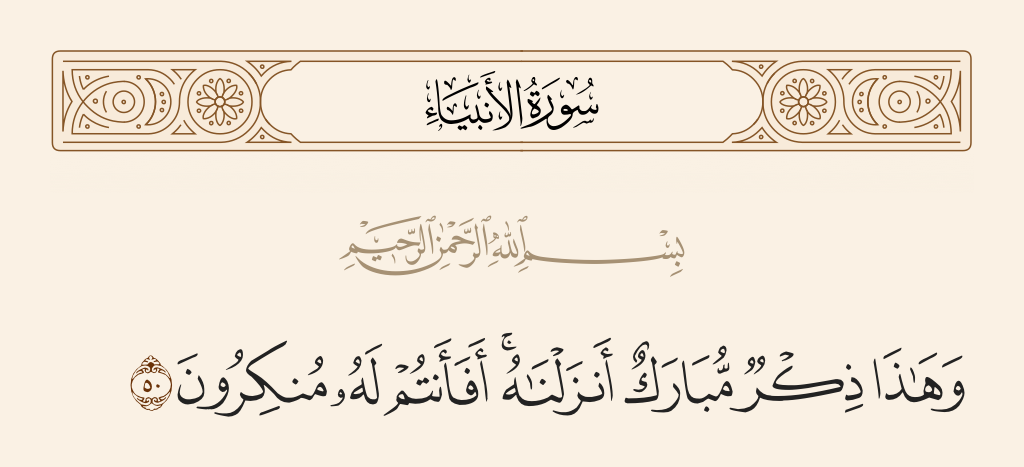 سُورَةُ الأَنبِيَاءِ
بِسْمِ ٱللَّهِ ٱلرَّحْمَٰنِ ٱلرَّحِيمِ
وَهَٰذَا ذِكْرٌ مُّبَارَكٌ أَنزَلْنَٰهُ ۚ أَفَأَنتُمْ لَهُۥ مُنكِرُونَ ٥٠